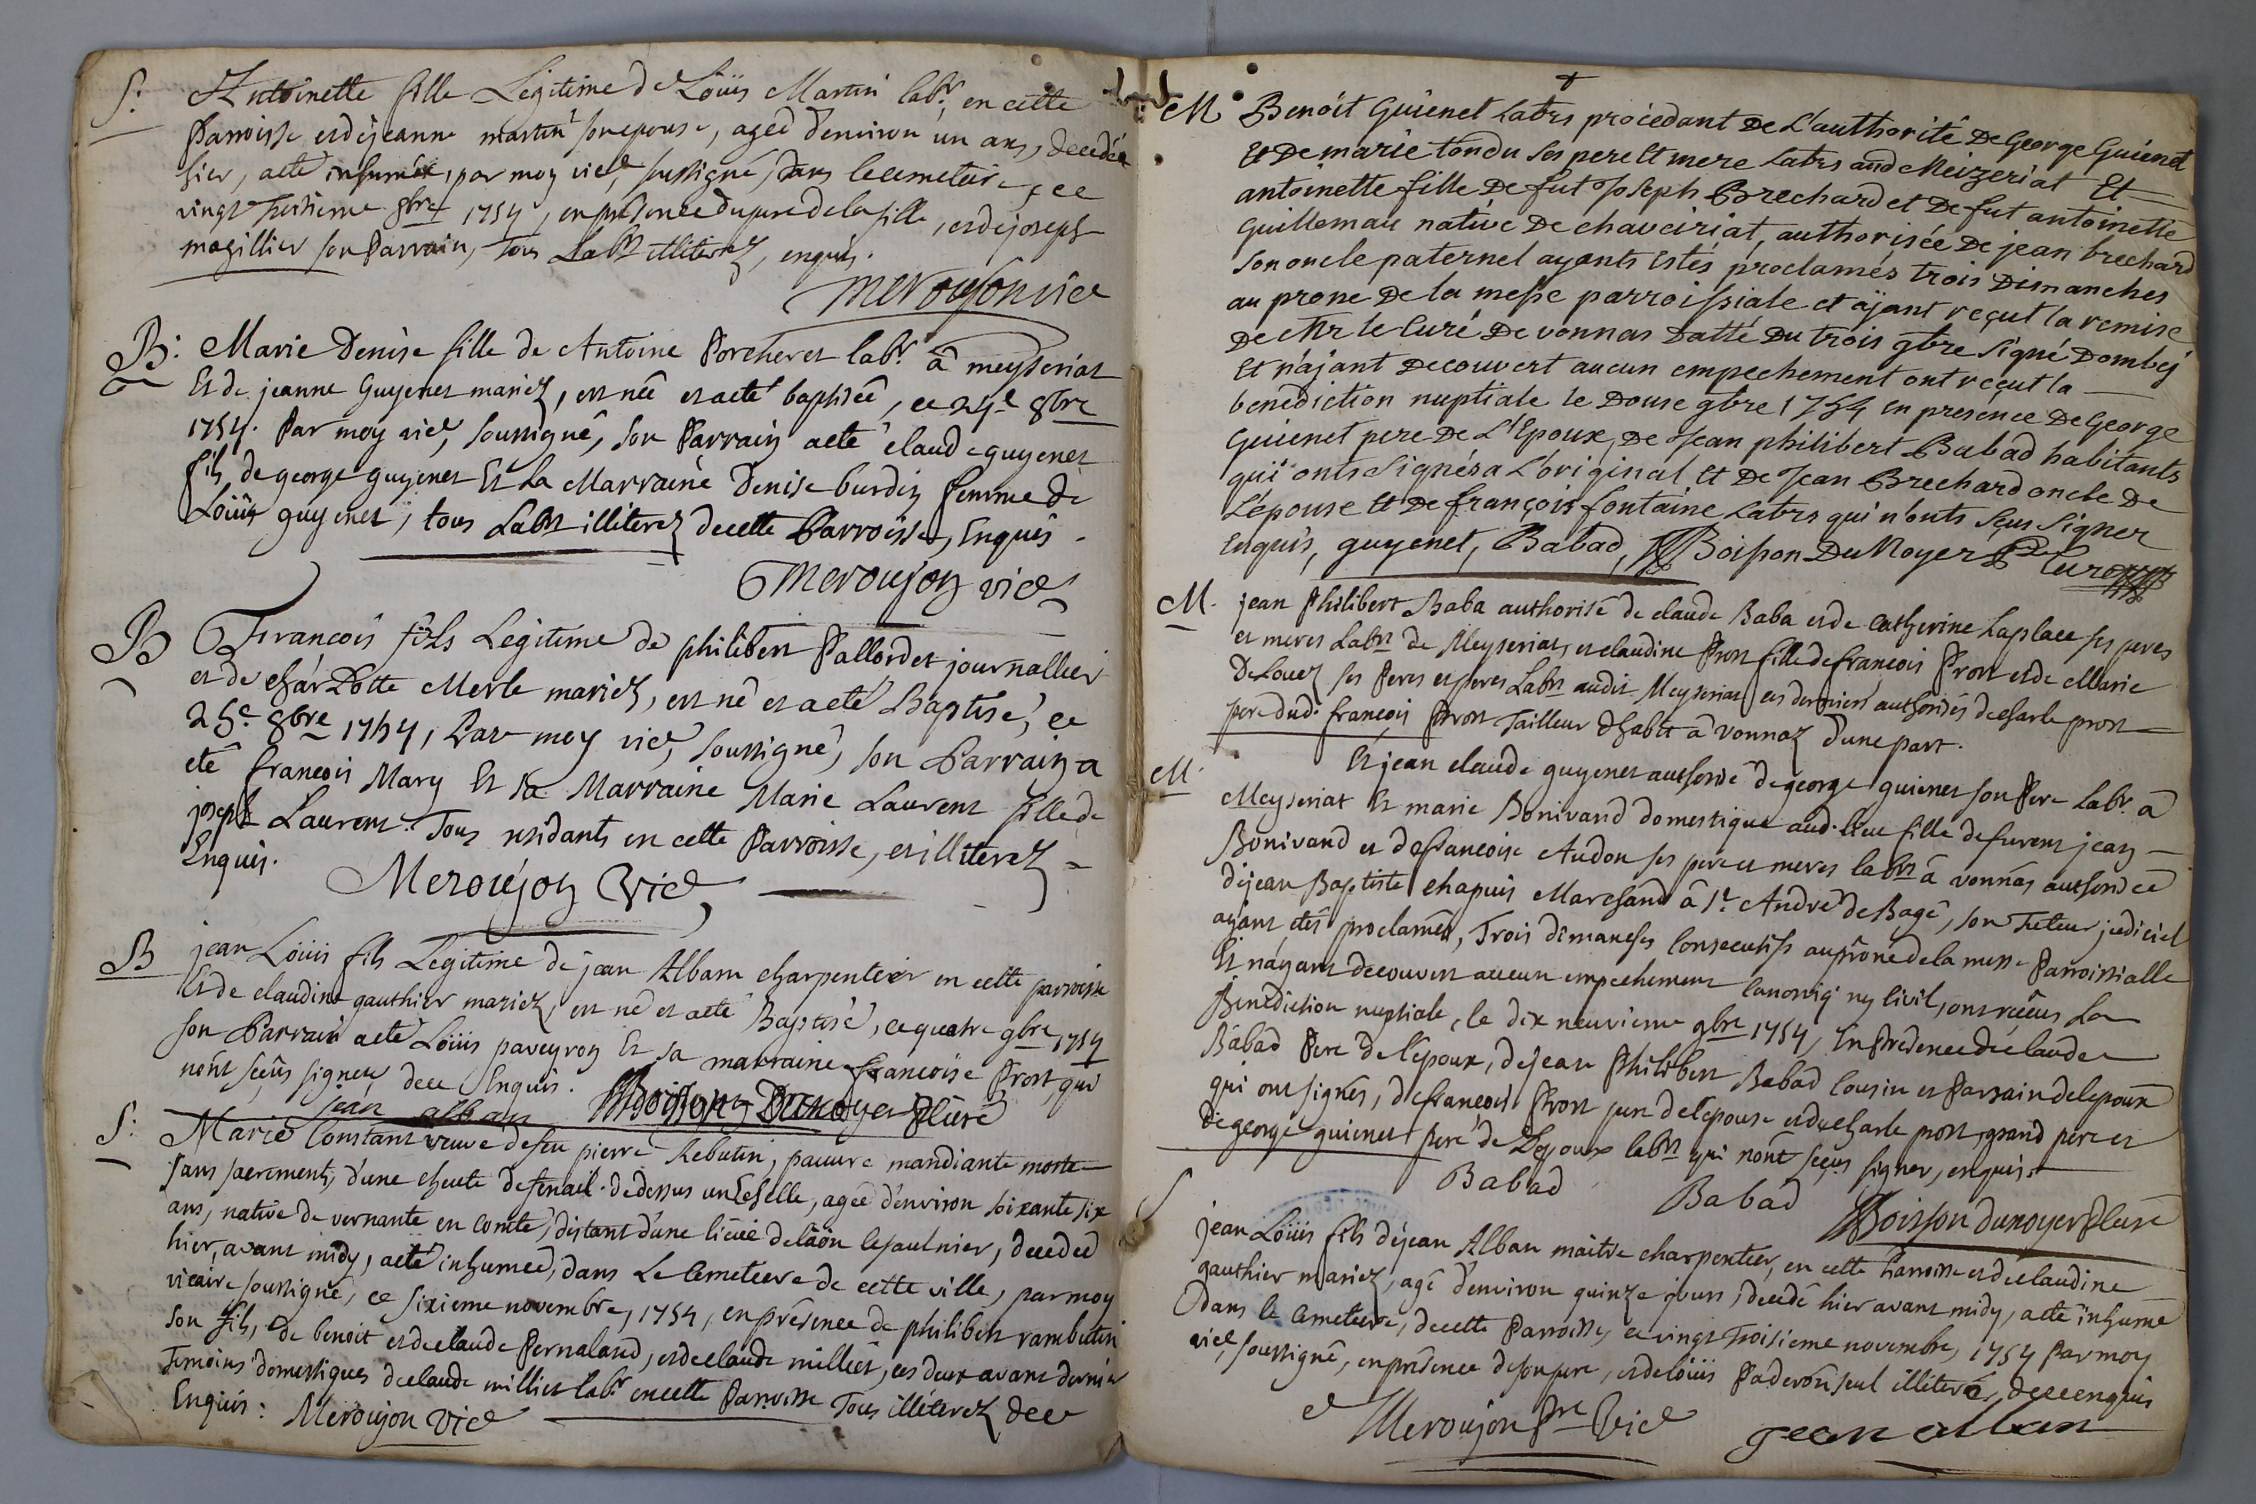 S: Antoinette fille Legitime de Loüis Martin labr, en cette
Parroisse et de jeanne martin son epouse, agée d'environ un ans, decedée
hier, a eté inhumée, par moy vice, soussigné, dans le cemetiere, ce
vingt troisieme 8bre 1754, en presence du pere de la fille, et de joseph
magillier son Parrain, tous Labrs illiterez, enquis.
Meroujon vice
B: Marie Denise fille de Antoine Porcheret labr. â meyseriat
Et de jeanne Guyenet mariez, est née et a eté baptisée, ce 24e 8bre
1754. Par moy vice, soussigné, son Parrain a eté claude guyenet
fils de george guyenet Et La Marraine Denise burdin femme de
Loüis guyenet, tous Labrs illiterez de cette Parroisse, Enquis.
Meroujon vice
B Francois fils Legitime de philibert Pallordet journallier
et de charlotte Merle mariez, est né et a eté Baptisé, ce
25e 8bre 1754, Par moy vice, soussigné, son Parrain a
eté francois Mary Et sa Marraine Marie Laurent fille de
joseph Laurent. Tous residants en cette Parroisse, et illiterez
Enquis. Meroujon Vice
B jean Loüis fils Legitime de jean Alban charpentier en cette parroisse
Et de claudine gauthier mariez, est né et a eté Baptisé, ce quatre 9bre 1754
son Parrain a eté Loüis paveyron Et sa marraine francoise Prost, qui
n'ont sçûs signer, de ce Enquis.
jean alban Boisson Dunoyer P curé
S: Marie Constant veuve de feu pierre Rebutin, pauvre mandiante morte
sans sacrements, d'une cheute de fenail. de dessus un Echelle, agée d'environ soixante six
ans, native de vernante en comté, distant d'une lieüe de laôn le saulnier, decedée
hier, avant midy, a eté inhumée, dans Le Cemetiere de cette ville, par moy
vicaire soussigné, ce sixieme novembre, 1754, en présence de philibert rambutin
son fils, de benoit et de claude Pernaland, et de claude milliet, ces deux avant dernier
Temoins domestiques de claude milliet labr. en cette Parroisse Tous illéterez de ce
Enquis: Meroujon Vice
M Benoit Guienet Labrs procédant De L'authorité De George Guienet
Et De marie tondu ses pere Et mere Labrs aud Meizeriat Et
antoinette fille De fut Joseph Brechard et De fut antoinette
Guillemau native De chaveiriat, authorisée De jean brechard
son oncle paternel ayants Estés proclamés trois Dimanches
au prone De la messe parroissiale et aÿant reçut la remise
De Mr le Curé De vonnas Datté Du trois 9bre Signé Dombej
Et n'ajant Decouvert aucun empechement ont reçut la
benediction nuptiale le Douse 9bre 1754 en presence De George
Guienet pere De L'Epoux, De Jean philibert Babad habitants
qui onts Signés a L'original Et De Jean Brechard oncle De
L'épouse Et De françois fontaine Labrs qui n'onts sçus Signer
Enquis, guyenet, Babad, Boisson Du Noyer P Curé
M. jean Philibert Baba authorisé de claude Baba et de Catherine Laplace ses peres
et meres Labrs de Meyseriat, et claudine Prost fille de francois Prost et de Marie
De Louez ses Peres et meres Labrs audit Meyseriat ces derniers authorisés de charle prost
pere dud. francois Prost Tailleur d'habit â vonnaz d'une part.
M. Et jean claude guyenet authorisé de george guienet son Pere Labr. â
Meyseriat Et marie Bonivand domestique aud. lieu fille de furent jean
Bonivand et de francoise Audon ses pere et meres labrs â vonnas authorisée
de jean Baptiste chapuis Marchand â St. André de Bagé, son Tuteur judiciel
ayant étés proclamés, Trois dimanches Consecutifs au prône de la messe Parroissialle
Et n'ayant decouvert aucun empechement Canoniq' ny Civil, ont reçus La
Benediction nuptiale, le dix neuvieme 9bre 1754, En Presence de claude
Babad Pere de l'epoux, de jean Philibert Babad Cousin et Parrain de l'epoux
qui ont signés, de francois Prost pere de l'epouse et de charle prost, grand pere et
de george guienet Pere de L'epoux labrs qui n'ont sçus signer, enquis.
Babad Babad Boisson dunoyer P curé
S jean Loüis fils de jean Alban maitre charpentier, en cette Parroisse et de claudine
gauthier mariez, agé d'environ quinze jours, decedé hier avant midy, a eté inhumé
Dans le Cemetiere, de cette Parroisse, ce vingt Troisieme novembre, 1754 Par moy
vice soussigné, en presence de son pere, et de loüis Paderon seul illiteré, de ce enquis
Meroujon Pre Vice jean alban